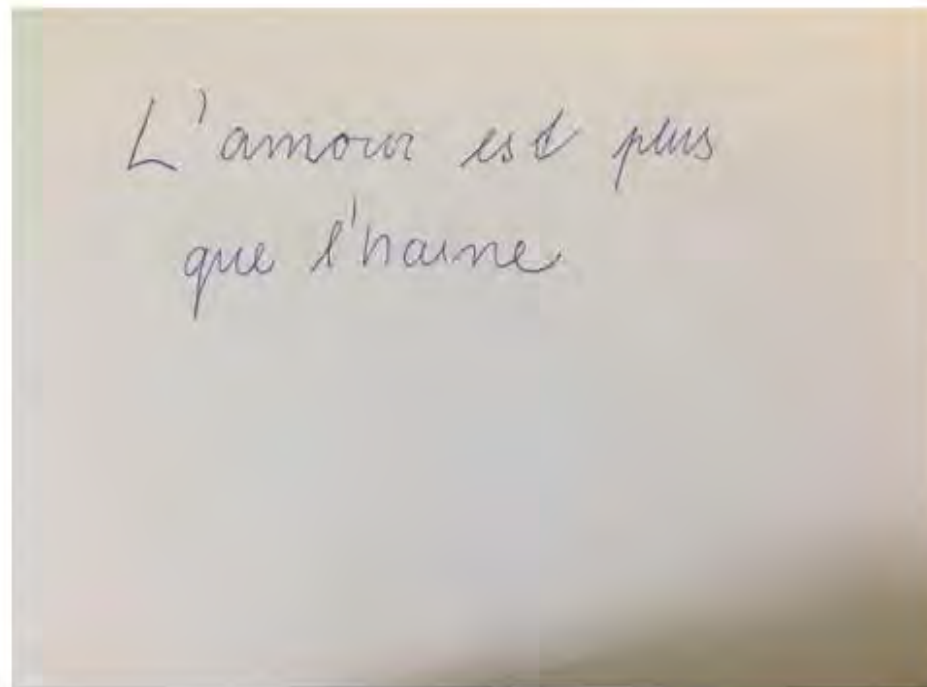 L'amour est plus
que l'haine